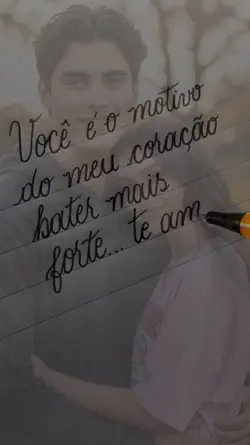 Você é o motivo
do meu coração
bater mais
forte... te am